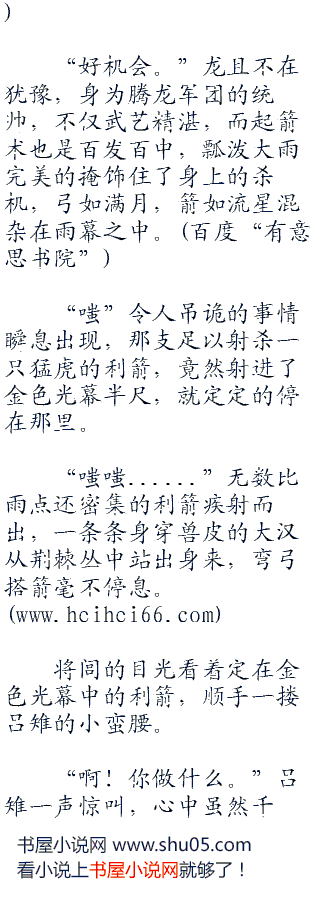 )
“好机会。”龙且不在
犹豫，身为腾龙军团的统
帅，不仅武艺精湛，而起箭
术也是百发百中，瓢泼大雨
完美的掩饰住了身上的杀
机，弓如满月，箭如流星混
杂在雨幕之中。(百度“有意
思书院”)
“嗤”令人吊诡的事情
瞬息出现，那支足以射杀一
只猛虎的利箭，竟然射进了
金色光幕半尺，就定定的停
在那里。
“嗤嗤......”无数比
雨点还密集的利箭疾射而
出，一条条身穿兽皮的大汉
从荆棘丛中站出身来，弯弓
搭箭毫不停息。
(www.hcihci66.com)
将闾的目光看着定在金
色光幕中的利箭，顺手一搂
吕雉的小蛮腰。
“啊！你做什么。”吕
雉一声惊叫，心中虽然千
书屋小说网 www.shu05.com
看小说上书屋小说网就够了！